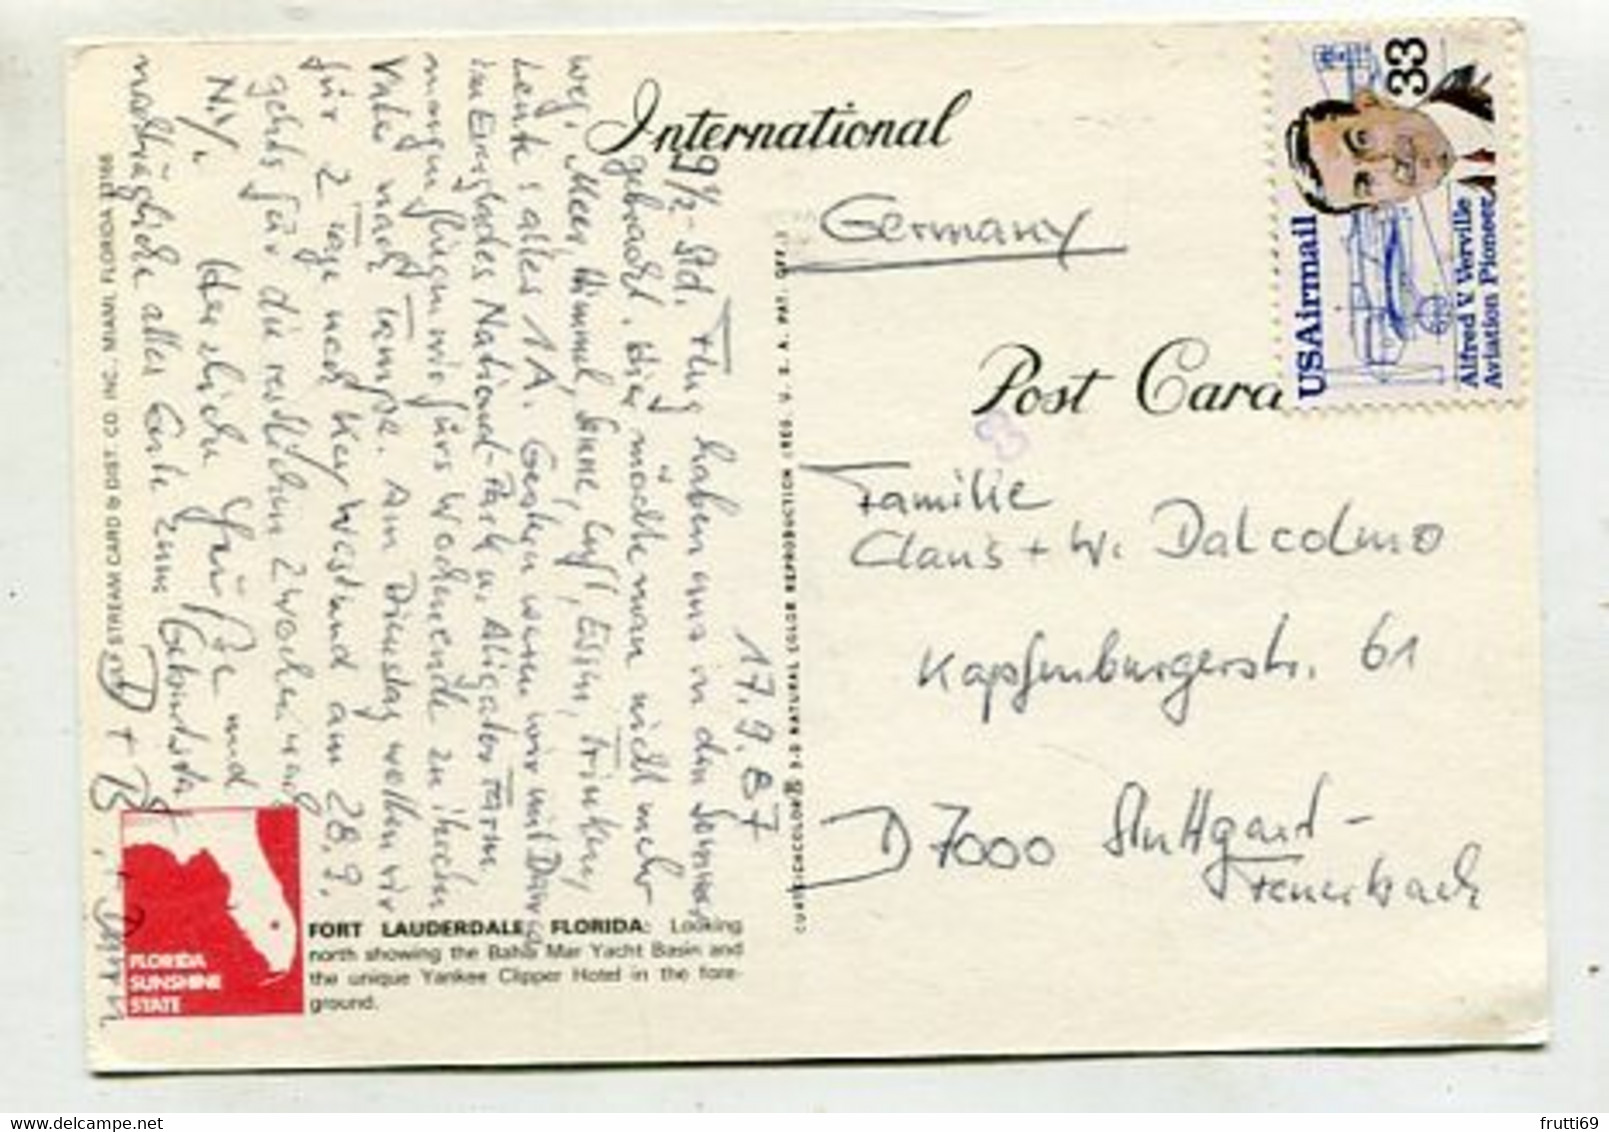 International
Germany
Post Card
USAirmail
33
Alfred V. Verville
Aviation Pioneer
Familie
Claus + W. Dalcolmo
Kapfenburgerstr. 61
D 7000 Stuttgart-
Feuerbach
17.9.87
9 1/2-Std. Flug haben uns in den Sommer
gebracht. Hier möchte man nicht mehr
weg. Meer, Himmel, Sonne, Luft, Essen, Trinken,
Leute: alles 1A. Gestern waren wir mit
im Everglades National-Park u. Aligator Farm,
morgen fliegen wir fürs Wochenende zu ihrem
Vater nach Tampa. Am Dienstag wollen wir
für 2 Tage nach Key West und am 28.9.
gehts für die restlichen 2 Wochen nach
N.Y. Herzliche Grüße und
nachträglich alles Gute zum Geburtstag
D + B
STREAM CARD & DIST. CO. INC., MIAMI, FLORIDA
CURTEICHCOLOR® 3-D NATURAL COLOR REPRODUCTION (REG. U. S. A. PAT. OFF.)
FORT LAUDERDALE, FLORIDA: Looking
north showing the Bahia Mar Yacht Basin and
the unique Yankee Clipper Hotel in the fore-
ground.
FLORIDA
SUNSHINE
STATE
delcampe.net
frutti69